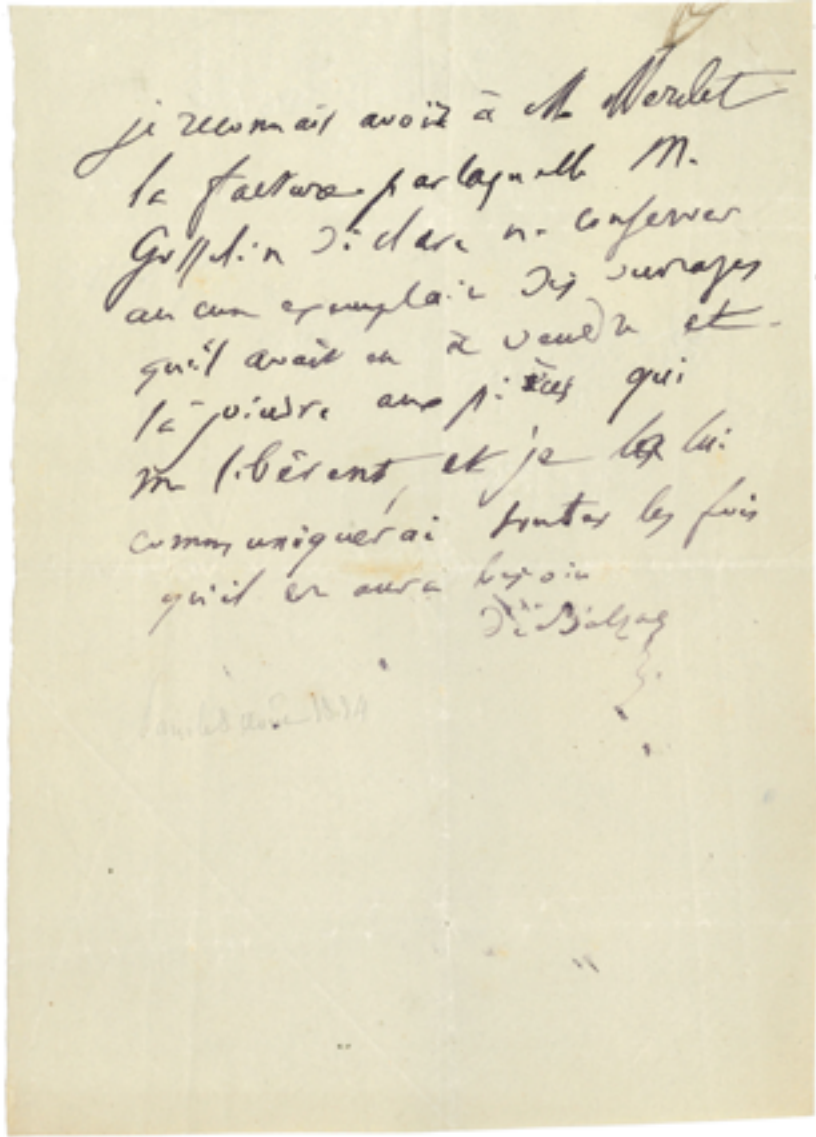 je reconnais avoir à M Werdet
la facture par laquelle M.
Gosselin déclare ne conserver
aucun exemplaire des ouvrages
qu'il avait eu à vendre et
la joindre aux pièces qui
me libèrent, et je la lui
communiquerai toutes les fois
qu'il en aura besoin
de Balzac
août